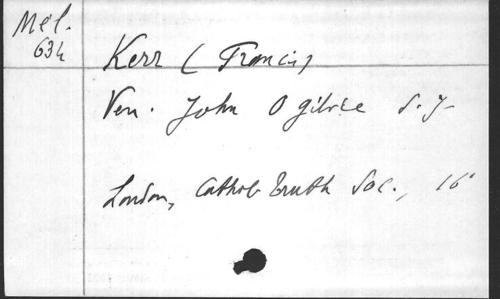 Mel.
634
Kerr (Francis)
Ven. John Ogilvie S. J.
London, Cathol. Truth Soc., 16°